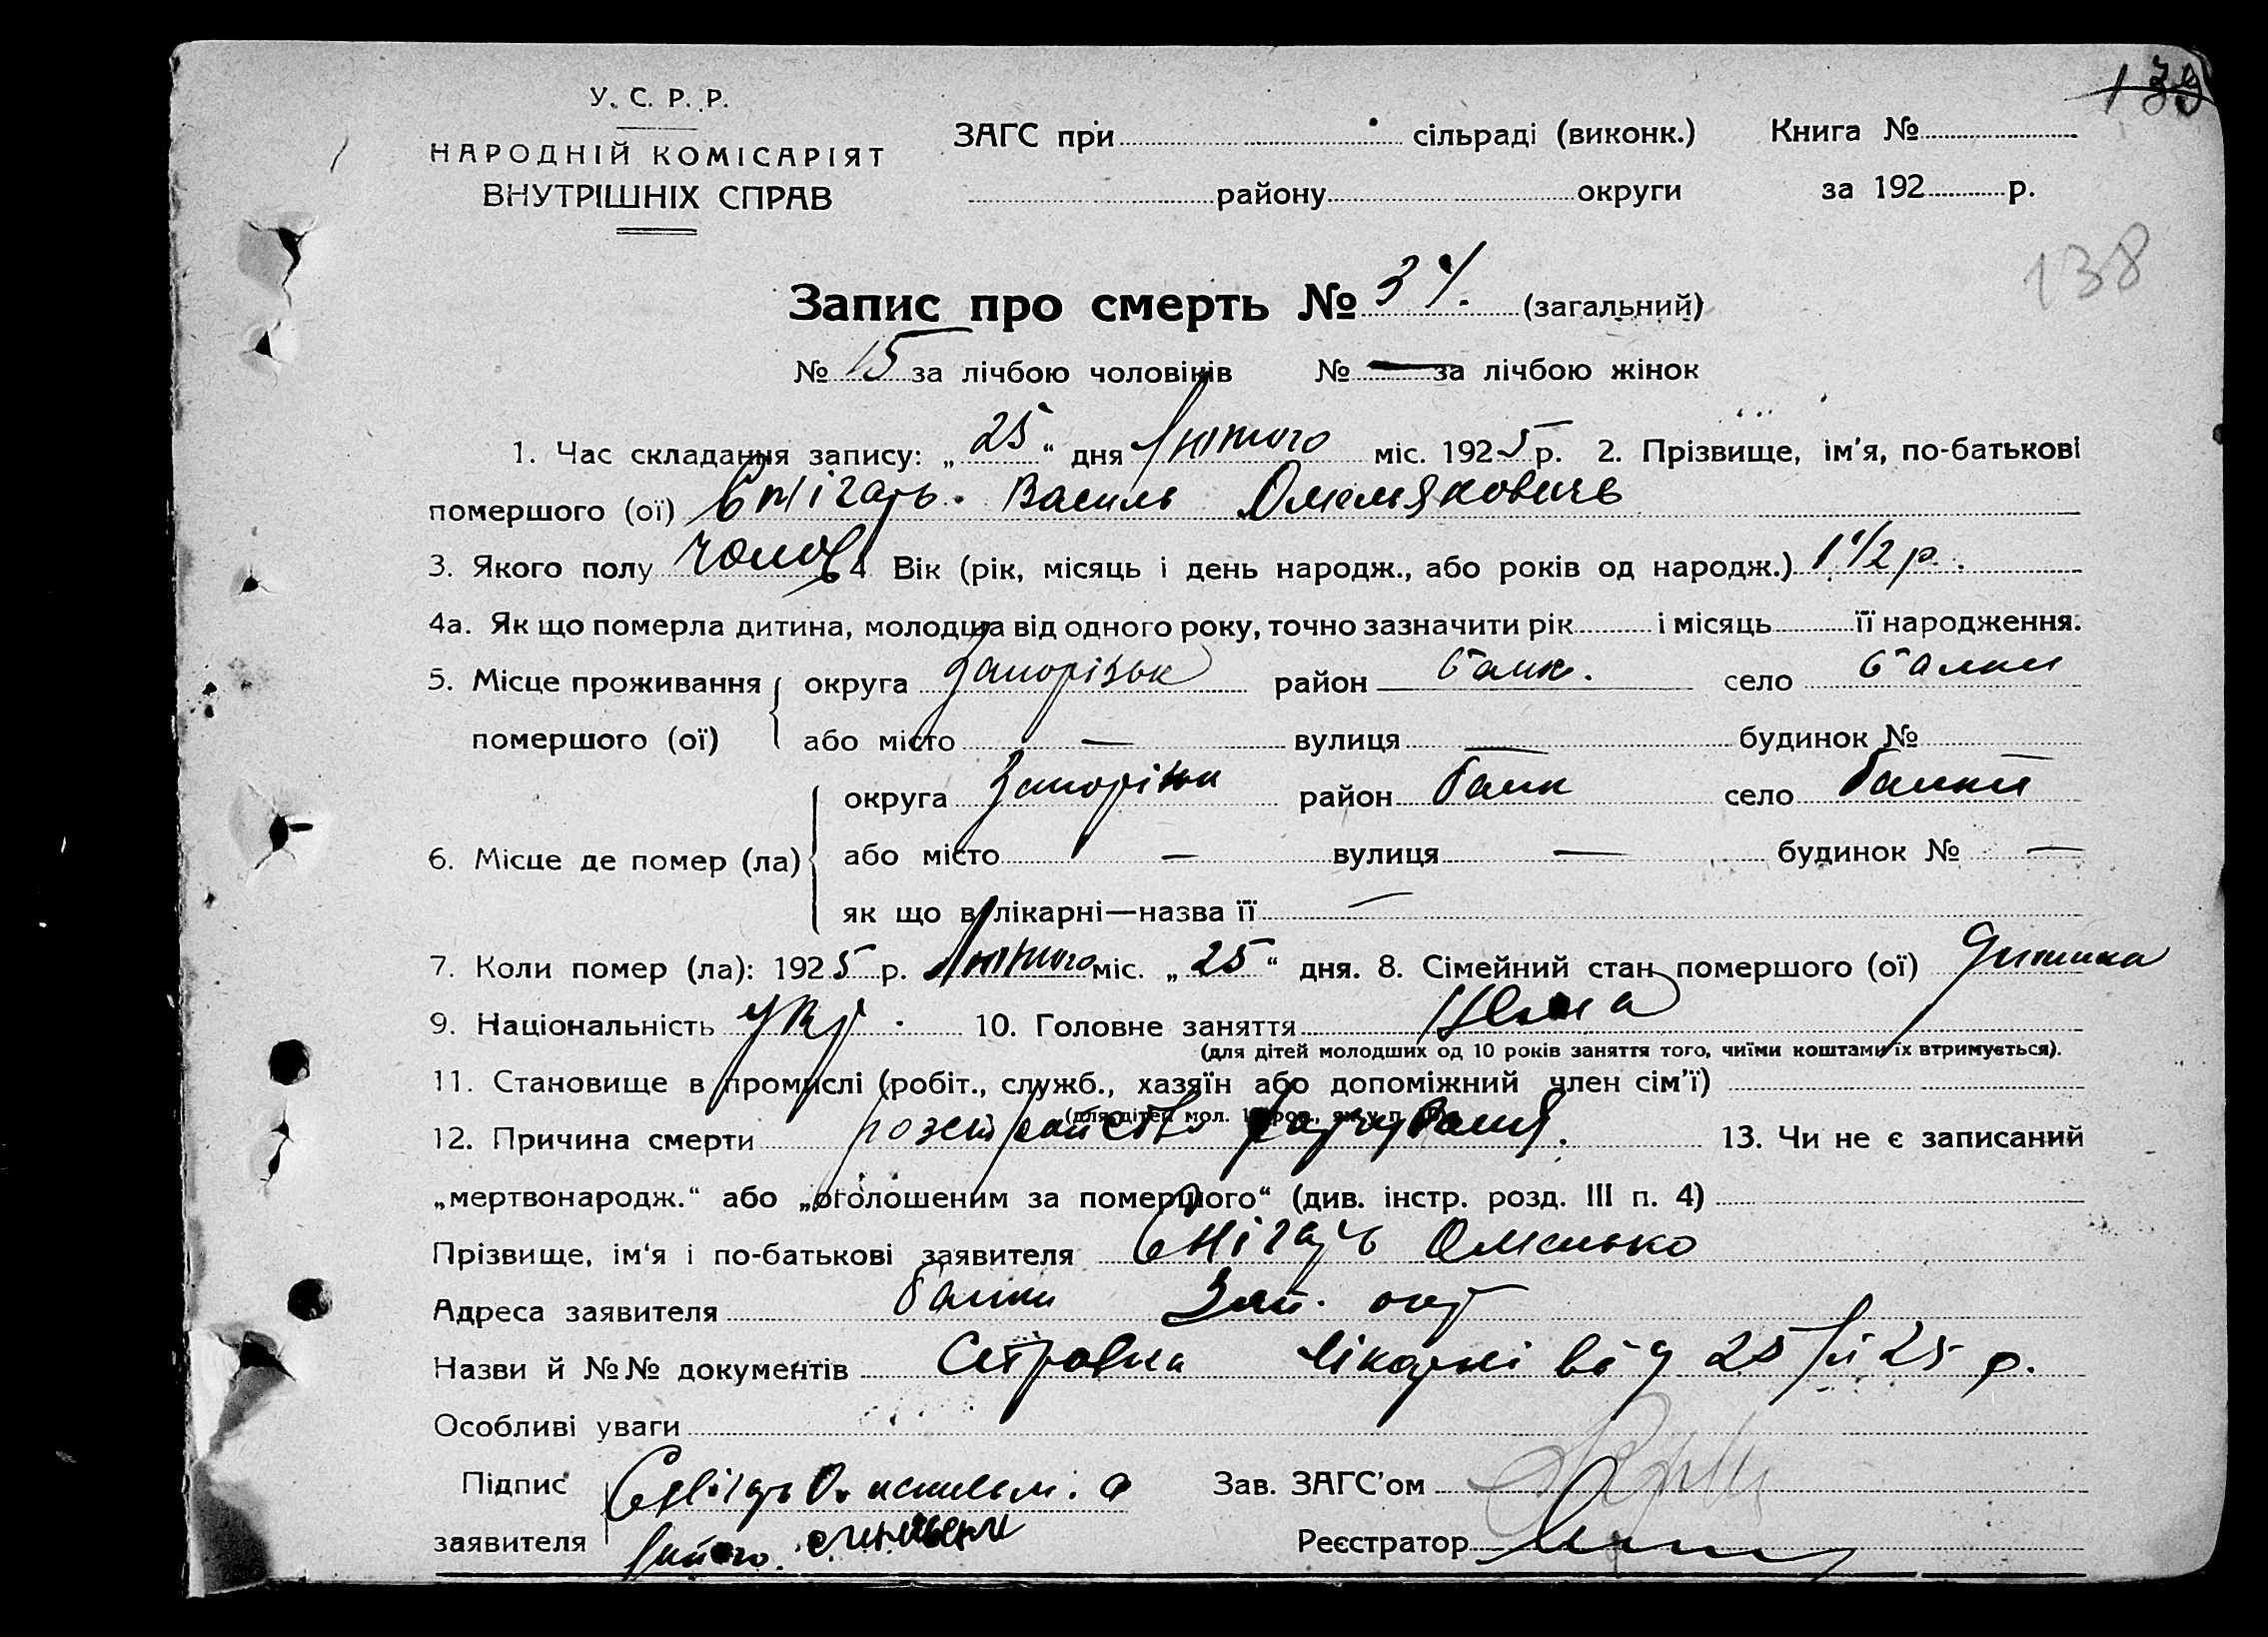 139
У. С. Р. Р.
НАРОДНІЙ КОМІСАРІЯТ
ВНУТРІШНІХ СПРАВ
ЗАГС при сільраді (виконк.) Книга №
району округи за 192 р.
138
Запис про смерть № (загальний)
№ 15 за лічбою чоловіків № — за лічбою жінок
1. Час складання запису: „25“ дня Лютого міс. 1925 р. 2. Прізвище, ім'я, по-батькові
помершого (ої) Василь Омельяновичь
3. Якого полу чолов 4 Вік (рік, місяць і день народж., або років од народж.) 1 1/2 р.
4а. Як що померла дитина, молодша від одного року, точно зазначити рік і місяць її народження.
5. Місце проживання округа Запорізьк район балк. село балки
помершого (ої) або місто — вулиця — будинок № —
округа Запорізьк район балк село балки
6. Місце де помер (ла) або місто — вулиця — будинок № —
як що в лікарні—назва її —
7. Коли помер (ла): 1925 р. Лютого міс. „25“ дня. 8. Сімейний стан помершого (ої) дитина
9. Національність укр. 10. Головне заняття
(для дітей молодших од 10 років заняття того, чиїми коштами їх втримується).
11. Становище в промислі (робіт., служб., хазяїн або допоміжний член сім'ї)
(для дітей мол. 10 рок., як у п.
12. Причина смерти розстройство 13. Чи не є записаний
„мертвонародж.“ або „оголошеним за помершого“ (див. інстр. розд. III п. 4)
Прізвище, ім'я і по-батькові заявителя Снігарь Омелько
Адреса заявителя балки Зап. окр
Назви й №№ документів лікарні від 25/ІІ 25 р.
Особливі уваги
Підпис Снігарь О. а Зав. ЗАГС'ом
заявителя Реєстратор